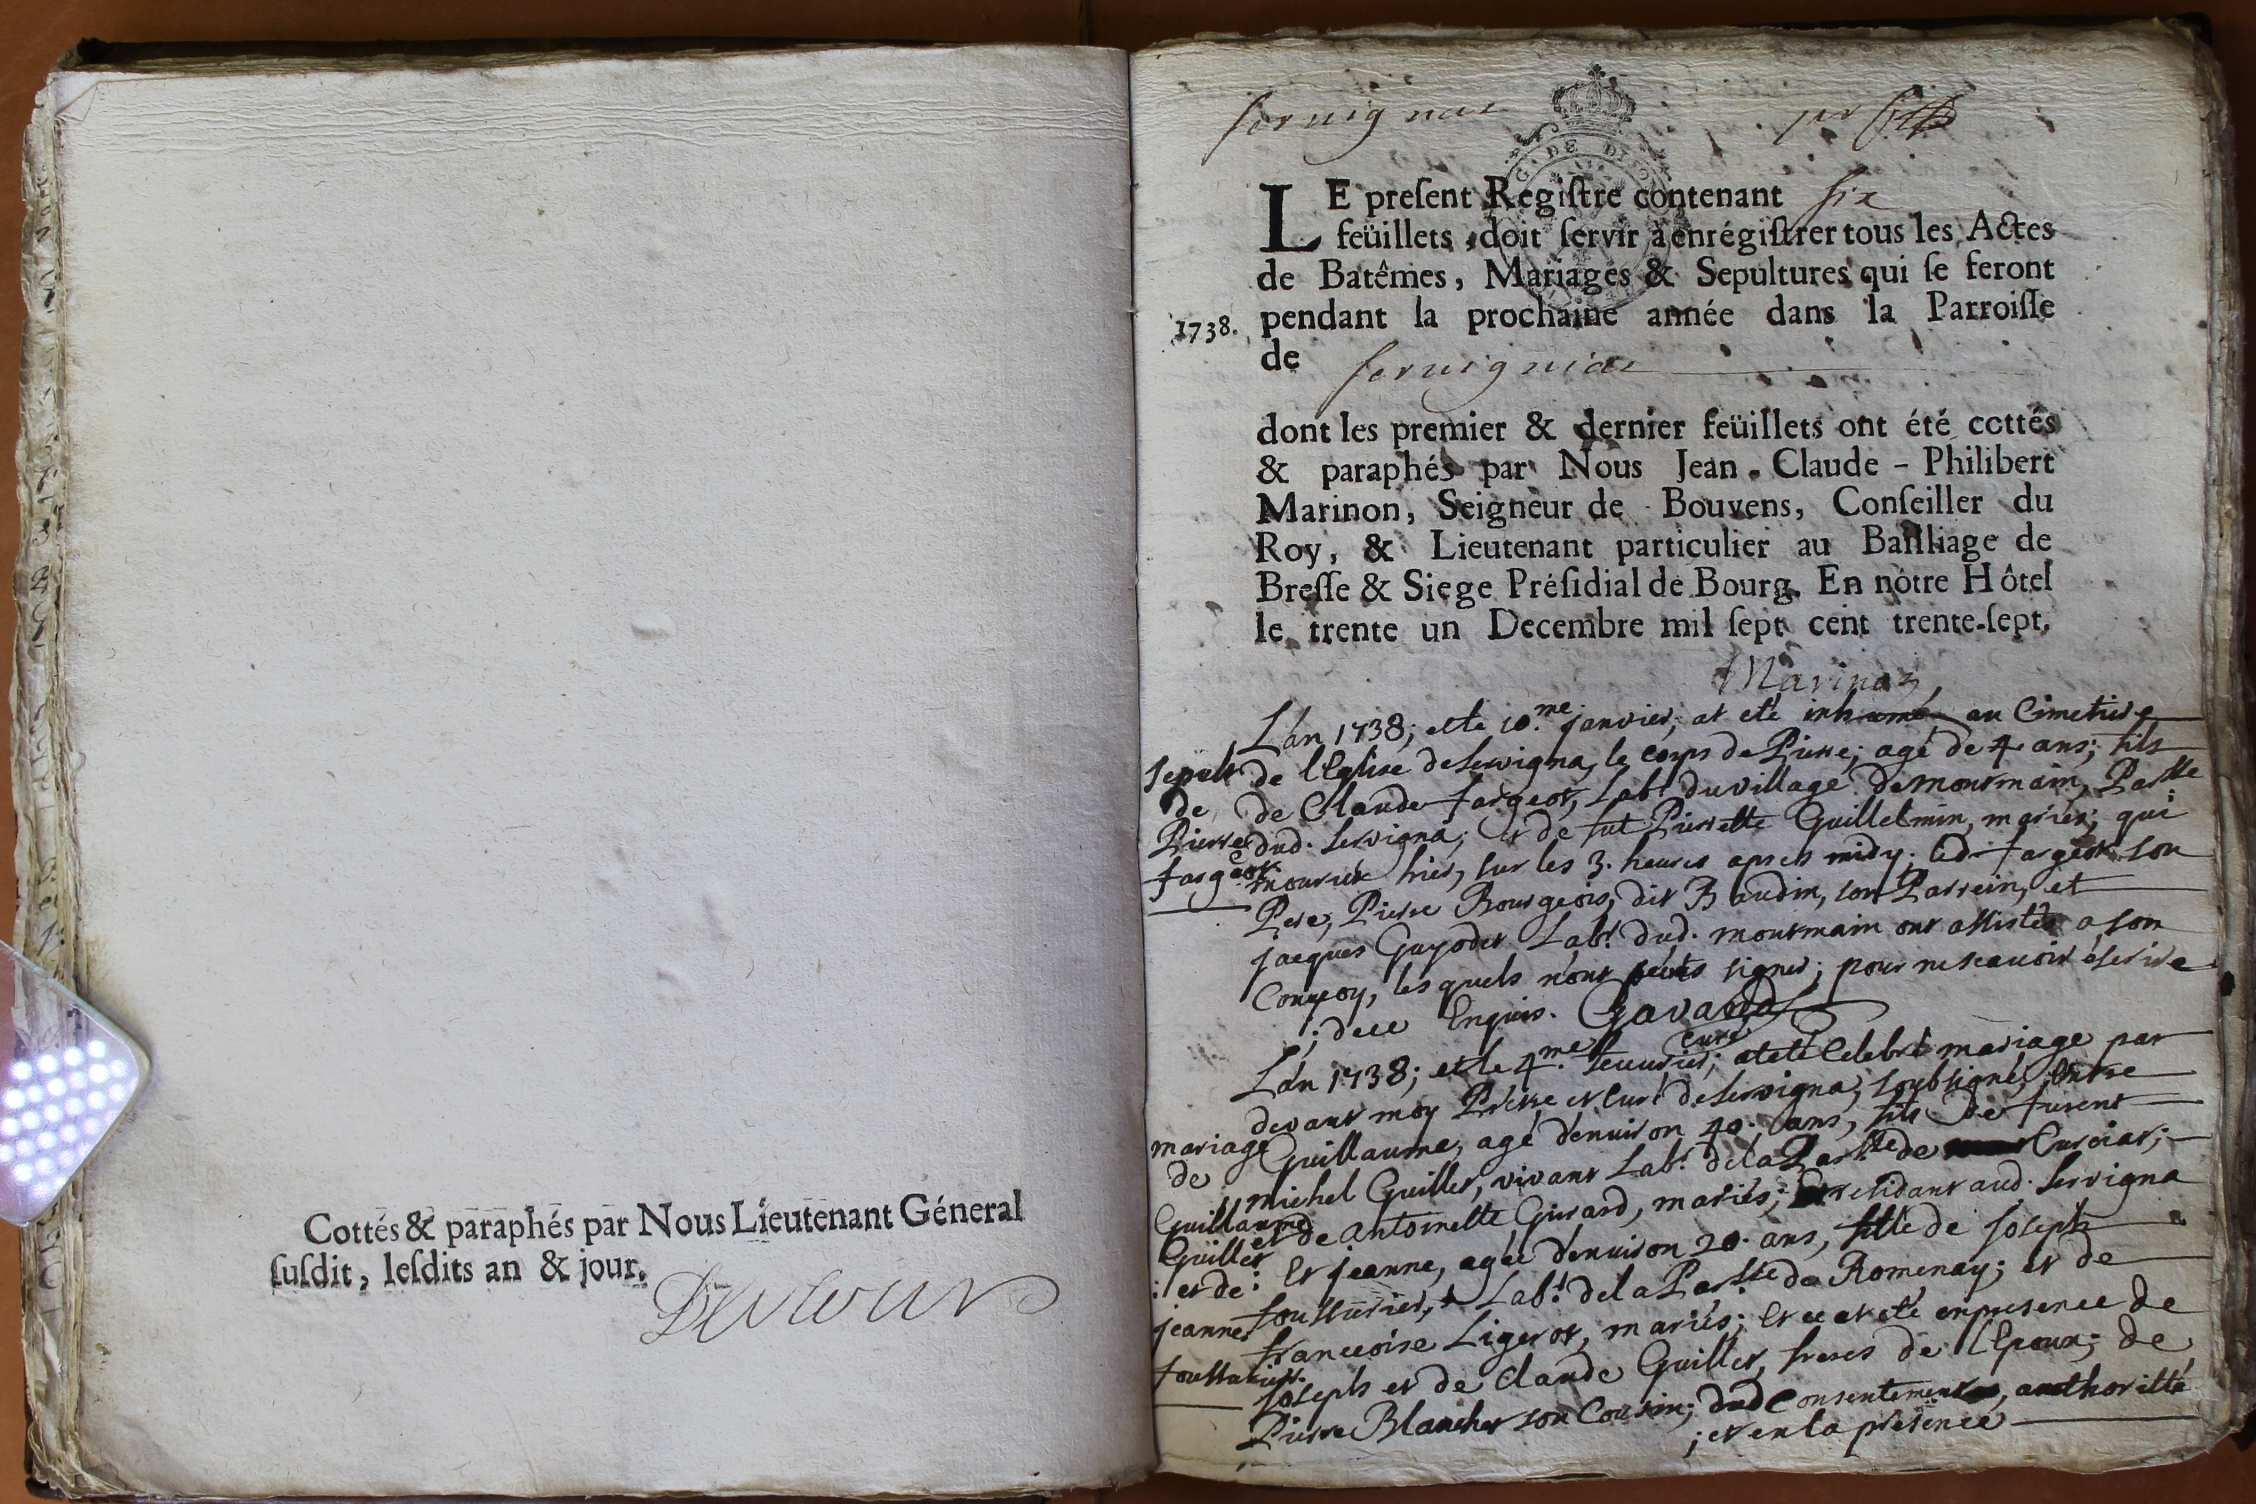 Cottés & paraphés par Nous Lieutenant Géneral
ſuſdit, leſdits an & jour.
servignat
G. DE DIJON
LE preſent Regiſtre contenant six
feüillets, doit ſervir à enrégiſtrer tous les Actes
de Batêmes, Mariages & Sepultures qui ſe feront
pendant la prochaine année dans la Parroiſſe
1738.
de servigniat
dont les premier & dernier feüillets ont été cottés
& paraphés par Nous Jean-Claude-Philibert
Marinon, Seigneur de Bouvens, Conſeiller du
Roy, & Lieutenant particulier au Bailliage de
Breſſe & Siege Préſidial de Bourg. En nôtre Hôtel
le trente un Decembre mil ſept cent trente-ſept.
Marinon
L'an 1738; et le 10.me janvier, at eté inhumé au Cimetiere
de l'Eglise de Servigna, le corps de Pierre; agé de 4 ans; fils
de Claude fargeot, Lab.r du village de montmain, Par.sse
dud. Servigna; et de fut Pierrette Guillelmin, mariés; qui
mourut hier, sur les 3. heures apres midy. led. fargeot son
Pere, Pierre Bourgeois, dit Baudin, son Parrein, et
jacques Guyodet Lab.r dud. montmain ont assistés a son
Convoy, lesquels n'ont sçeuts signer; pour ne scavoir éscrire
; de ce Enquis. Gavand
curé
Sepult
de
Pierre
fargeot
L'an 1738; et le 4.me feuvrier; at eté Celebré mariage par
devant moy Prêtre et Curé de Servigna, soubsigné, Entre
Guillaume, agé d'environ 40. ans, fils de furent
michel Guillet, vivant Lab.r de la Par.sse de Curciat;
et de antoinette Girard, mariés; residant aud. Servigna
: Et jeanne, agée d'environ 20. ans, fille de joseph
foutturier, Lab.r de la Par.sse de Romenay; et de
francoise Ligerot, mariés; et ce at eté en presence de
joseph et de Claude Guillet, freres de l'Epoux; de
Pierre Blanchet son Cousin; dud Consentement, authoritté
; et en la presence
mariage
de
Guillaume
Guillet
: et de :
jeanne
foutturier.